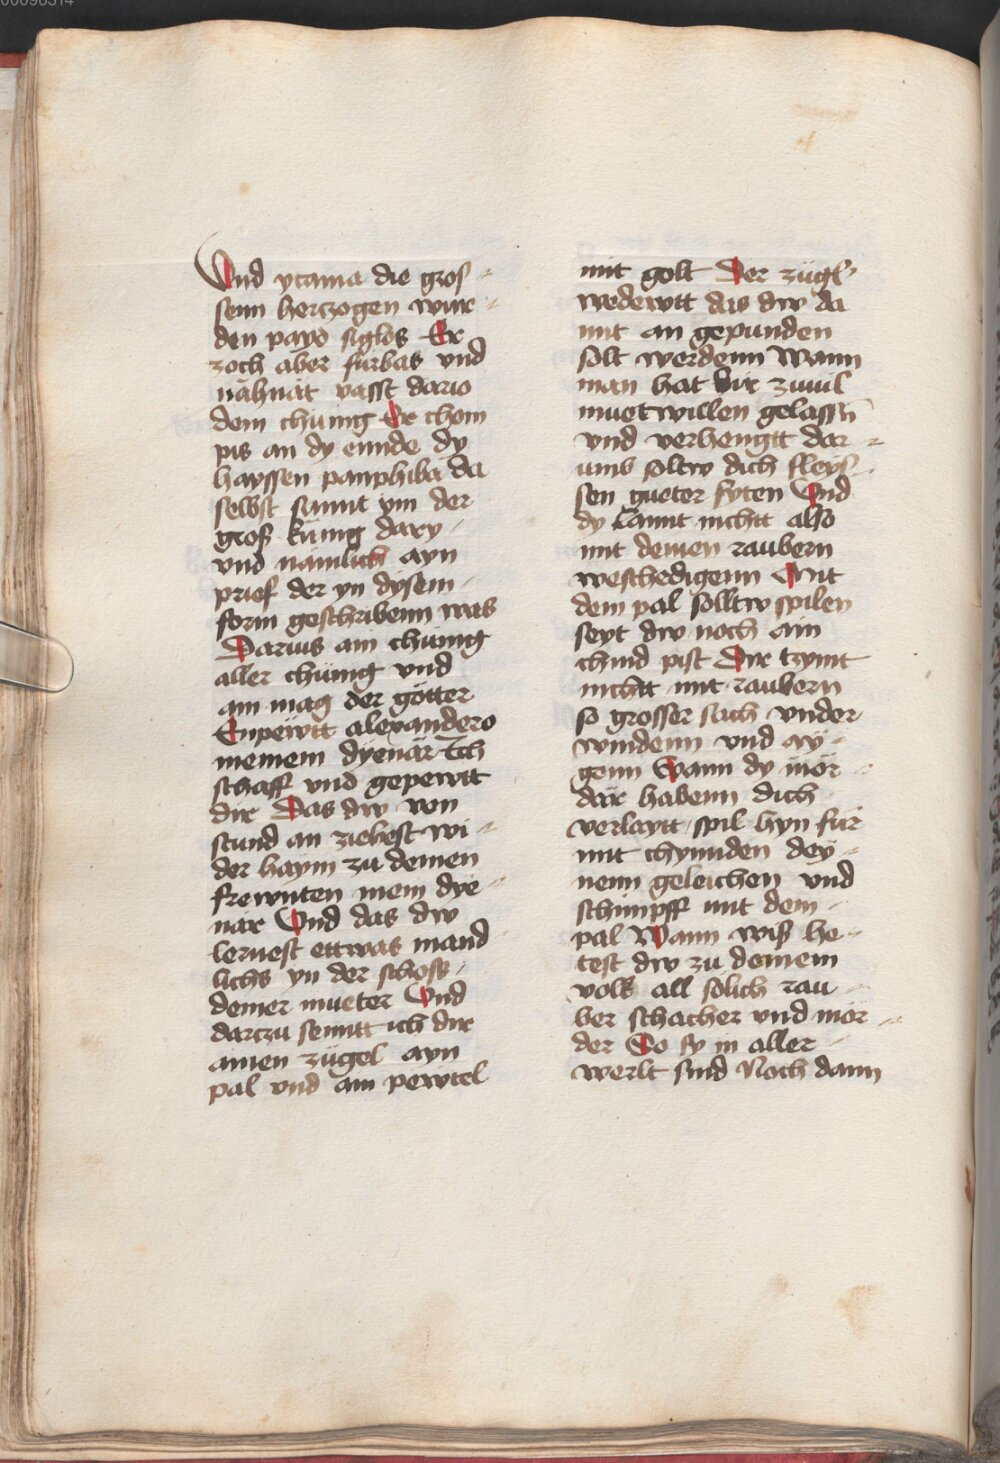 Vnd ytania die gros-
senn herczogen wur-
den payd siglos Er
zoch aber furbas vnd
nähnät vasst dario
dem chünig Er chom
pis an dy ennde dy
hayssen panphiba da
selbst samnt ym der
gros künig dary
vnd nämlich ayn
prief der yn dysem
form geschribenn was
Darius ain chünig
aller chünig vnd
ain mag der götter
Enpewtt alexandero
meinem dyenär Ich
schaff vnd gepewtt
dir Das dw von
stund an ziehest wi-
der haym zu deinen
frewnten mein dye
när Vnd das dw
lernest ettwas mand
lichs yn der schoss
deiner mueter Vnd
darczu senntt ich dir
ainen zügel ayn
pal vnd ain pewtel
mit golt Der zügl
wedewtt das dw da
mit an gepunden
solt werdenn Wann
man hat dir zuuil
muetwillen gelassn̄
vnd verhengtt dar-
umb soltw dich fleys-
sen gueter syten Vnd
dy lannt nichtt also
mit deinen raubern
weschedigenn Mit
dem pal solltw spilen
seyt dw noch ain
chind pist Dir tzymt
nichtt mit raubern
so grosser sach vnder
windenn vnd ay-
genn Wann dy mör-
där habenn dich
verlaytt spil hyn für
mit chynnden dey-
nenn geleichen vnd
schimpff mit dem
pal Wann wiss he-
test dw zu deinem
volk all solich rau-
ber schacher vnd mör-
der So sy in aller
werlt sind Noch dann